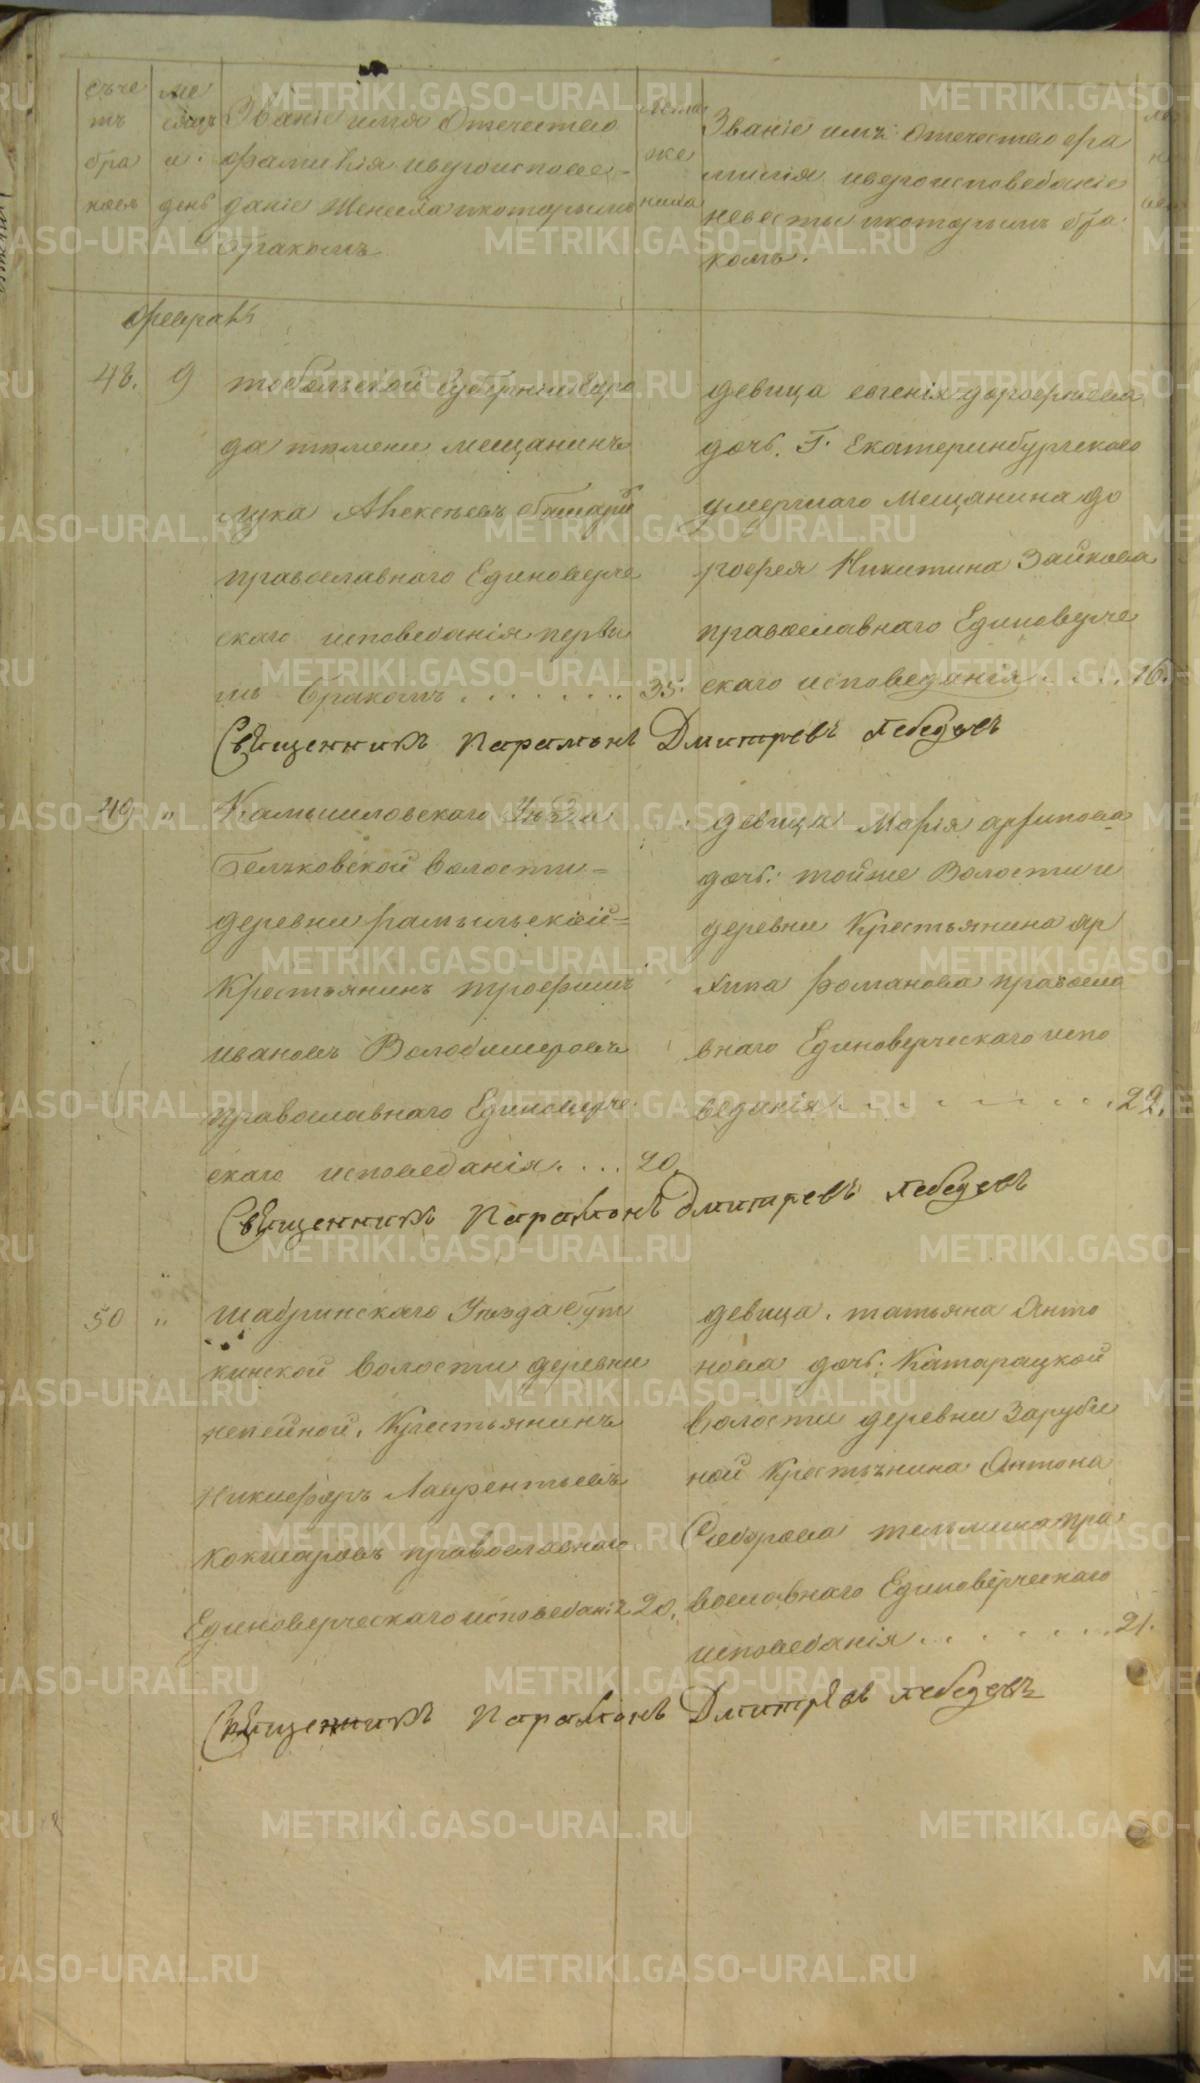 съче
тъ
бра
ковъ
ме
сяцъ
и.
день
Званіе имя отечество
фамилія ивероиспове-
даніе Жениха икоторымъ
бракомъ
лета
же
ниха
Званіе имъ отечество фа
милія ивероисповеданіе
невесты икоторымъ бра
комъ.
февраль
48. 9
тобольской Губерніи горо
да тюмени мещанинъ
лука Алексеевъ
православнаго Единоверче
скаго исповеданія первы
мъ бракомъ . . . . . . . 35.
девица евгенія дорофеева
дочь. Г. Екатеринбургскаго
умершаго мещанина до
рофея Никитина Зайкова
православнаго Единоверче
скаго исповеданія . . . . 16.
Священникъ Парамонъ Дмитревъ лебедевъ
49 "
Камышловскаго Уезда
волости=
деревни
Крестьянинъ трофимъ
ивановъ Володимеровъ
православнаго Единоверче
скаго исповеданія . . . . 20.
девица Марія архипова
дочь: тойже Волости и
деревни Крестьянина ар
хипа романова правосла
внаго Единоверческаго испо
веданія . . . . . . . . . 22.
Священникъ Парамонъ Дмитревъ лебедевъ
50 "
шадринскаго Уезда бут
кинской волости деревни
непейной. Крестьянинъ
Никифоръ Лаврентьевъ
кокшаровъ православнаго
Единоверческаго исповеданія 20.
девица. татьяна Анто
нова дочь: Катарацкой
волости деревни Заруби
ной Крестьянина Антона
Сидорова пра
вославнаго Единоверческаго
исповеданія . . . . . . . 21.
Священникъ Парамонъ Дмитревъ лебедевъ
METRIKI.GASO-URAL.RU